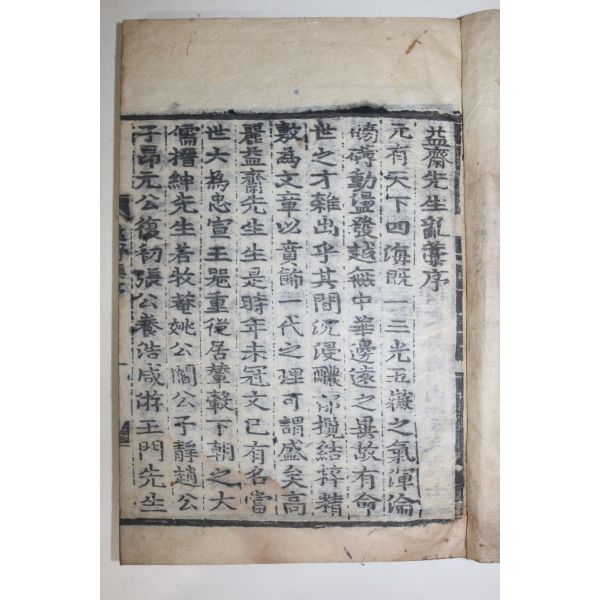 益齋先生亂藁序
元有天下四海既一三光五嶽之氣渾淪
磅礴動盪發越無中華邊遠之異故有命
世之才雜出乎其間沉浸醲郁攬結粹精
敷為文章以賁飾一代之理可謂盛矣高
麗益齋先生生是時年未冠文已有名當
世大為忠宣王器重從居輦轂下朝之大
儒搢紳先生若牧菴姚公閻公子靜趙公
子昂元公復初張公養浩咸游王門先生